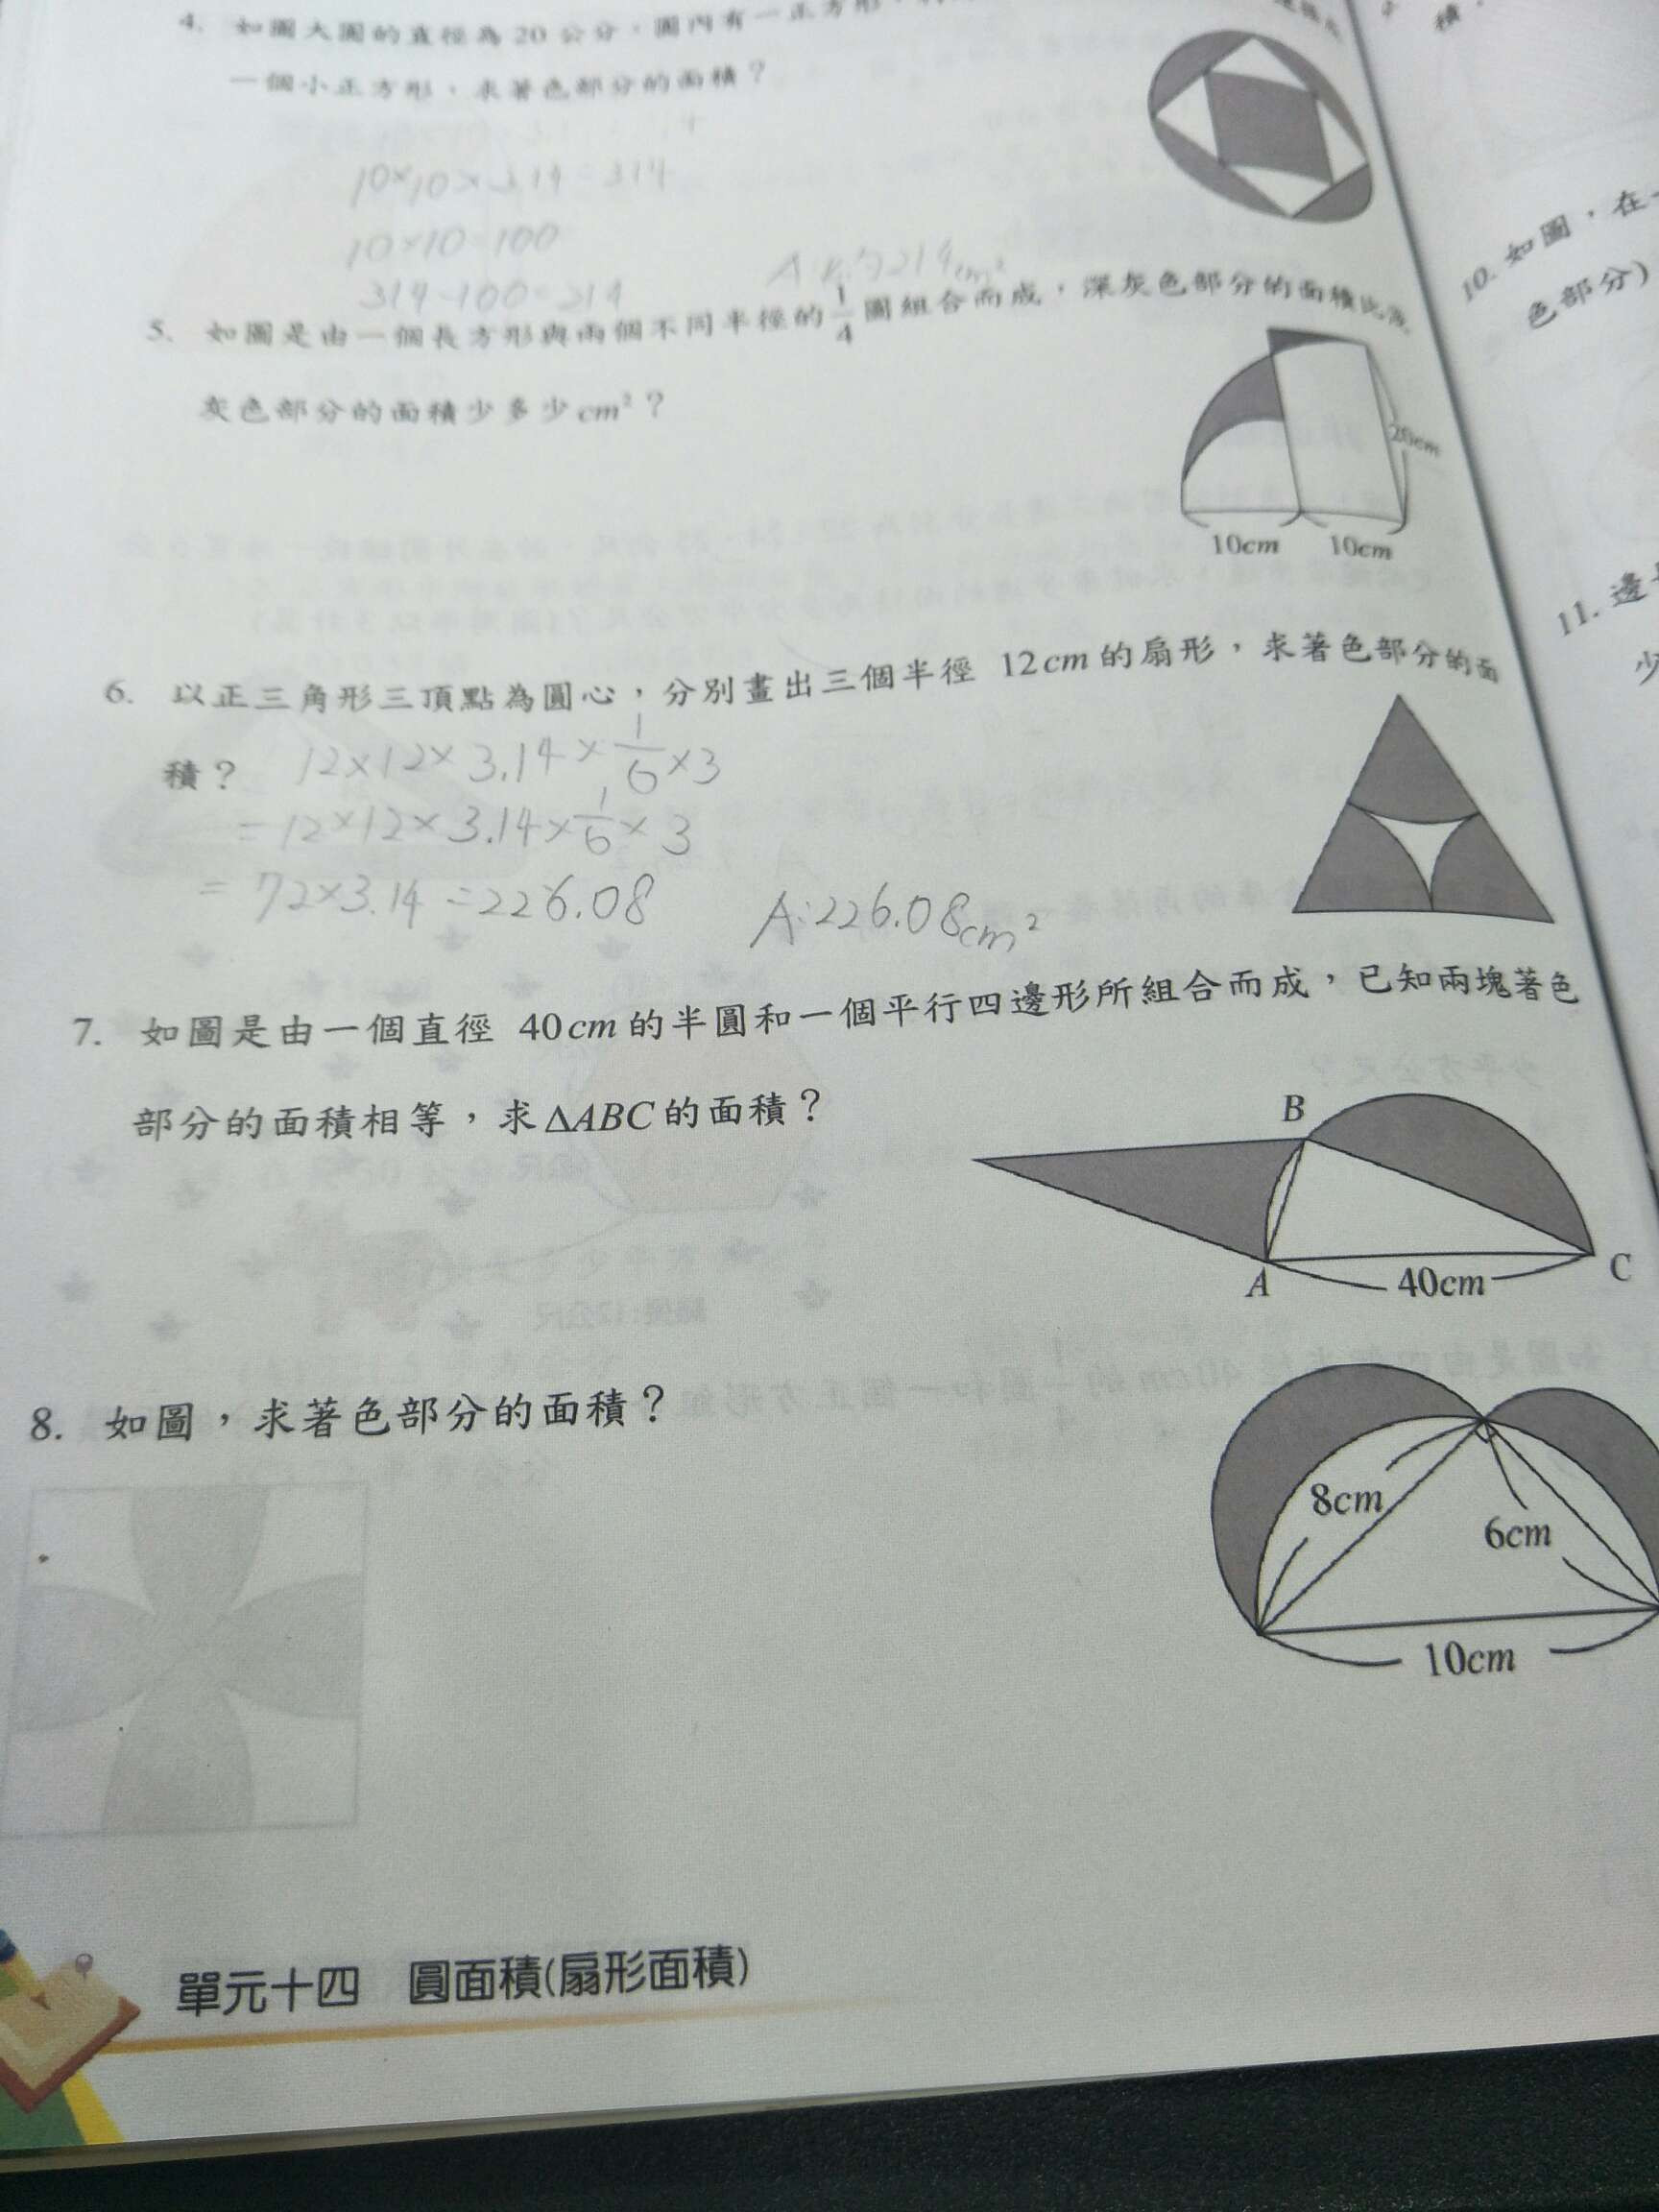 4. 如圖大圓的直徑為 20 公分，圓內有一正方形，
一個小正方形，求著色部分的面積？
10×10×3.14=314
10×10=100
314-100=214
214cm²
5. 如圖是由一個長方形與兩個不同半徑的 1/4 圓組合而成，深灰色部分的面積比淺
灰色部分的面積少多少cm²？
20cm
10cm
10cm
6. 以正三角形三頂點為圓心，分別畫出三個半徑 12cm的扇形，求著色部分的面
積？
12×12×3.14×1/6×3
=12×12×3.14×1/6×3
=72×3.14=226.08
A:226.08cm²
7. 如圖是由一個直徑 40cm的半圓和一個平行四邊形所組合而成，已知兩塊著色
部分的面積相等，求ΔABC的面積？
B
A
40cm
C
8. 如圖，求著色部分的面積？
8cm
6cm
10cm
單元十四 圓面積(扇形面積)
積，
10. 如圖，在一
色部分)
11. 邊
少